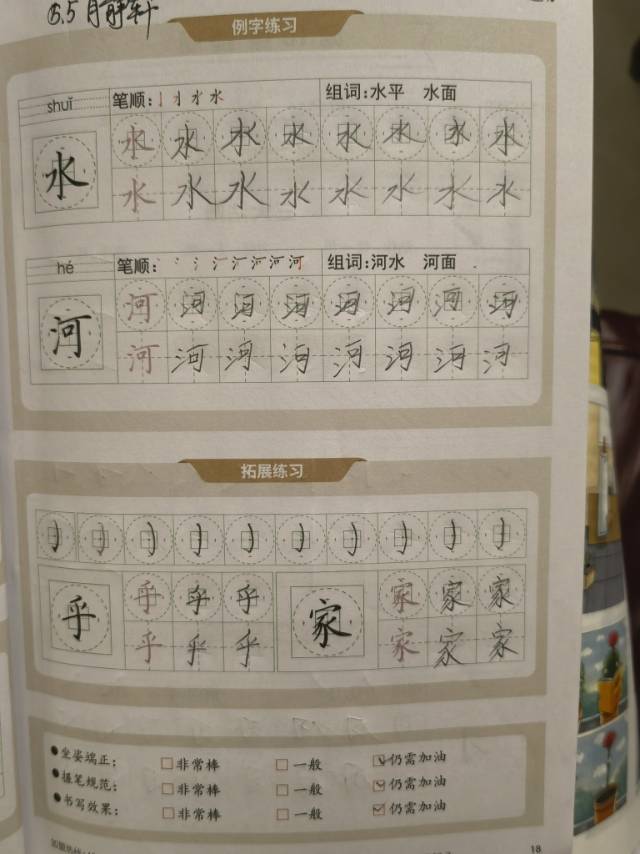 6.5
例字练习
shuǐ 笔顺: 组词:水平 水面
水 水 水 水 水 水 水 水 水
水 水 水 水 水 水 水 水
hé 笔顺: 组词:河水 河面
河 河 河 河 河 河 河 河 河
河 河 河 河 河 河 河 河
拓展练习
乎 乎 乎 乎 家 家 家 家
乎 乎 乎 家 家 家
●坐姿端正: □非常棒 □一般 ☑仍需加油
●握笔规范: □非常棒 □一般 ☑仍需加油
●书写效果: □非常棒 □一般 ☑仍需加油
18